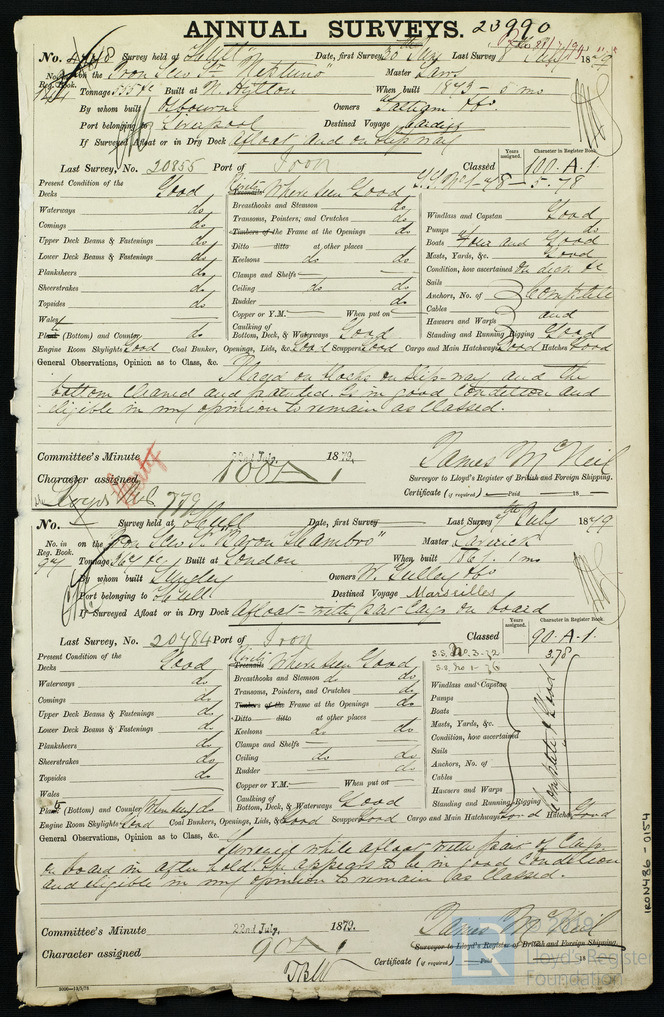 ANNUAL SURVEYS. 23990
No. Survey held at Hull Date, first Survey 30th Last Survey 18
No. in Reg. Book. on the Iron Screw Str "Neptune" Master
Tonnage Built at N. Hylton When built 1873 - 5 mo
By whom built Osbourne Owners
Port belonging to Liverpool Destined Voyage Cardiff
If Surveyed Afloat or in Dry Dock Afloat and on Slipway
Years assigned. Character in Register Book.
Last Survey, No. 20855 Port of Iron Classed 100.A.1.
Present Condition of the Decks Good Where seen Good 5.78
Waterways do Breasthooks and Stemson do Windlass and Capstan Good
Comings do Transoms, Pointers, and Crutches do Pumps do
Upper Deck Beams & Fastenings do Timbers of the Frame at the Openings do Boats Four and Good
Lower Deck Beams & Fastenings do Ditto ditto at other places Masts, Yards, &c. Good
Planksheers do Keelsons do do Condition, how ascertained on deck &c
Sheerstrakes do Clamps and Shelfs Sails
Topsides do Ceiling do do Anchors, No. of Complete
Wales Rudder do Cables and
Copper or Y.M. When put on Hawsers and Warps
Plate (Bottom) and Counter do Caulking of Bottom, Deck, & Waterways Good Standing and Running Rigging Good
Engine Room Skylights Good Coal Bunker, Openings, Lids, &c. Good Scuppers Good Cargo and Main Hatchways Good Hatches Good
General Observations, Opinion as to Class, &c. Placed on blocks on Slip-way and the
bottom cleaned and painted. Is in good Condition and
eligible in my opinion to remain as Classed.
Committee's Minute 22nd July, 1879.
Character assigned 100A1
James McNeil
Surveyor to Lloyd's Register of British and Foreign Shipping.
Certificate (if required) Paid 18
No. Survey held at Hull Date, first Survey Last Survey July 1879
No. in Reg. Book. on the Iron Screw Str "Baron Hambro" Master Laverick
Tonnage Built at London When built 1861. 1 mo
By whom built Owners W. Gulley &c
Port belonging to Hull Destined Voyage Marseilles
If Surveyed Afloat or in Dry Dock Afloat - with part Cargo on board
Years assigned. Character in Register Book.
Last Survey, No. 20484 Port of Iron Classed 90.A.1.
Present Condition of the Decks Good Where seen Good S.S. No. 3-72 3.78
Waterways do Breasthooks and Stemson do S.S. No 1-76
Comings do Transoms, Pointers, and Crutches do Windlass and Capstan
Upper Deck Beams & Fastenings do Timbers of the Frame at the Openings do Pumps
Lower Deck Beams & Fastenings do Ditto ditto at other places Boats
Planksheers do Keelsons do do Masts, Yards, &c.
Sheerstrakes do Clamps and Shelfs Condition, how ascertained
Topsides do Ceiling do do Sails
Wales Rudder do Anchors, No. of
Copper or Y.M. When put on Cables
Hawsers and Warps
Complete & Good
Plate (Bottom) and Counter Where seen do Caulking of Bottom, Deck, & Waterways Good Standing and Running Rigging
Engine Room Skylights Good Coal Bunkers, Openings, Lids, &c. Good Scuppers Good Cargo and Main Hatchways Good Hatches Good
General Observations, Opinion as to Class, &c.
Surveyed while afloat with part of Cargo
on board in after hold &c appears to be in good Condition
and eligible in my opinion to remain as Classed.
Committee's Minute 22nd July, 1879.
Character assigned 90A1
James McNeil
Surveyor to Lloyd's Register of British and Foreign Shipping.
Certificate (if required) Paid 18
IRON486-0154
LR Lloyd's Register Foundation